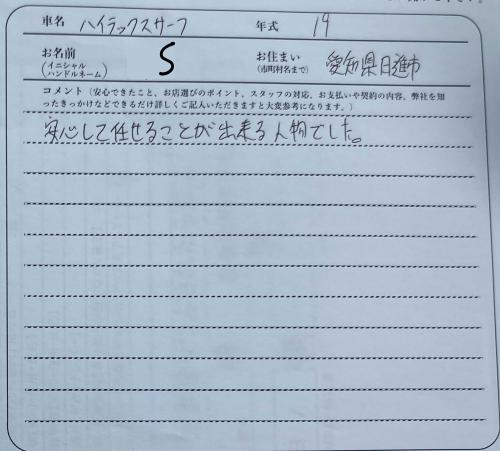 車名 ハイラックスサーフ 年式 19
お名前 S お住まい 愛知県日進市
(イニシャル ハンドルネーム) (市町村名まで)
コメント (安心できたこと、お店選びのポイント、スタッフの対応、お支払いや契約の内容、弊社を知
ったきっかけなどできるだけ詳しくご記入いただきますと大変参考になります。)
安心して任せることが出来る人物でした。